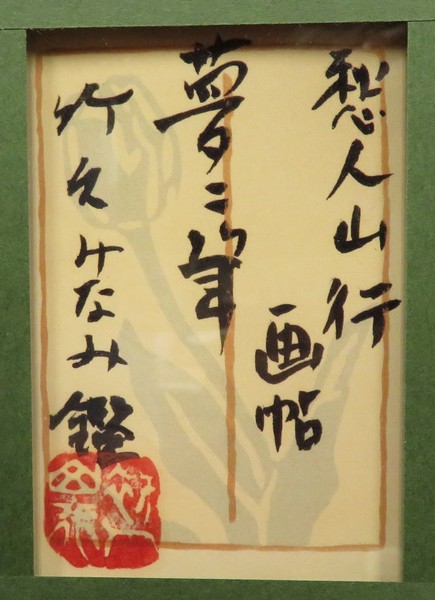 愁人山行
画帖
夢二筆
竹久みなみ鑑